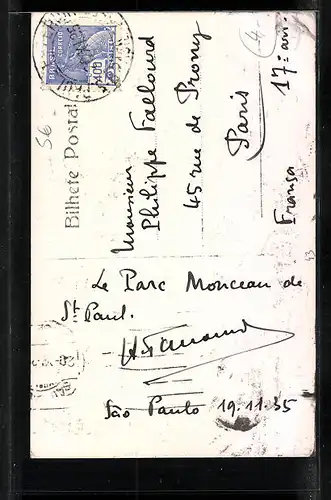 BRASIL CORREIO
400
Bilhete Postal
56
4
Monsieur
Philippe Fallourd
45 rue de Prony
Paris
17e arr.
França
43
Le Parc Monceau de
St Paul.
São Paulo 19.11.35